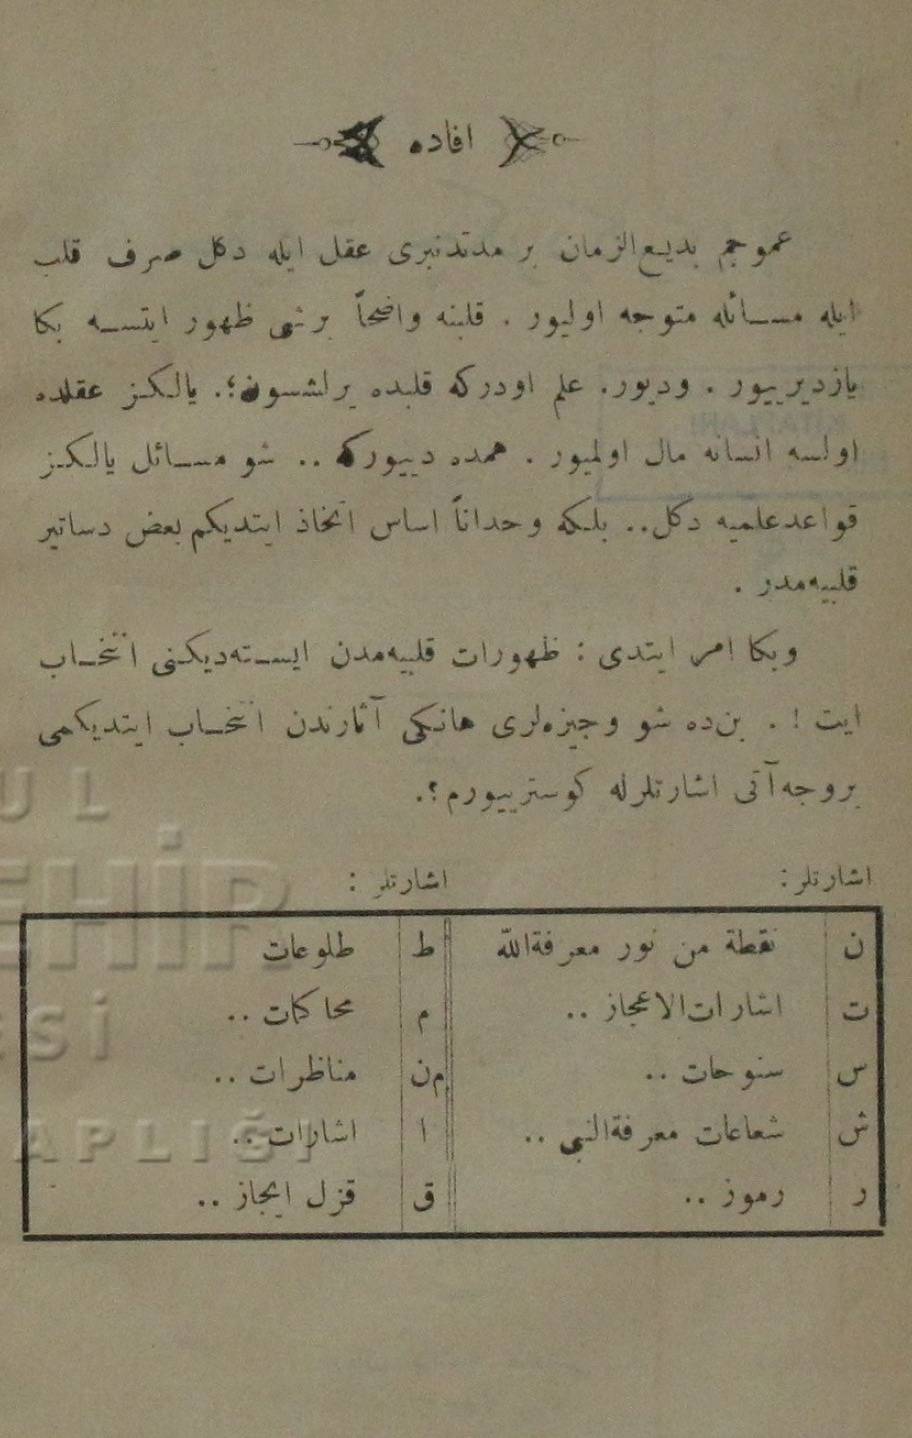 افاده
عموجم بديع‌الزمان بر مدتدنبری عقل ايله دكل صرف قلب
ايله مسائله متوجه اوليور . قلبنه واضحاً برشی ظهور ايتسه بكا
يازديرييور . وديور. علم اودركه قلبده يرلشسون؛. يالكز عقلده
اولسه انسانه مال اولميور . همده دييوركه .. شو مسائل يالكز
قواعدعلميه دكل.. بلكه وحداناً اساس اتخاذ ايتديكم بعض دساتير
قلبيه‌مدر .
وبكا امر ايتدی : ظهورات قلبيه‌مدن ايسته‌ديكنی انتخاب
ايت ! . بن‌ده شو وجيزه‌لری هانكی آثارندن انتخاب ايتديكمی
بروجه‌آتی اشارتلرله كوسترييورم ؟.
اشارتلر : اشارتلر :
ن نقطة من نور معرفة‌الله ط طلوعات
ت اشارات‌الاعجاز .. م محاكمات ..
س سنوحات .. م‌ن مناظرات ..
ش شعاعات معرفة‌النبی .. ا اشارات ..
ر رموز .. ق قزل ايجاز ..
KİTAPLARI
UL
EHİR
ESİ
APLIĞI